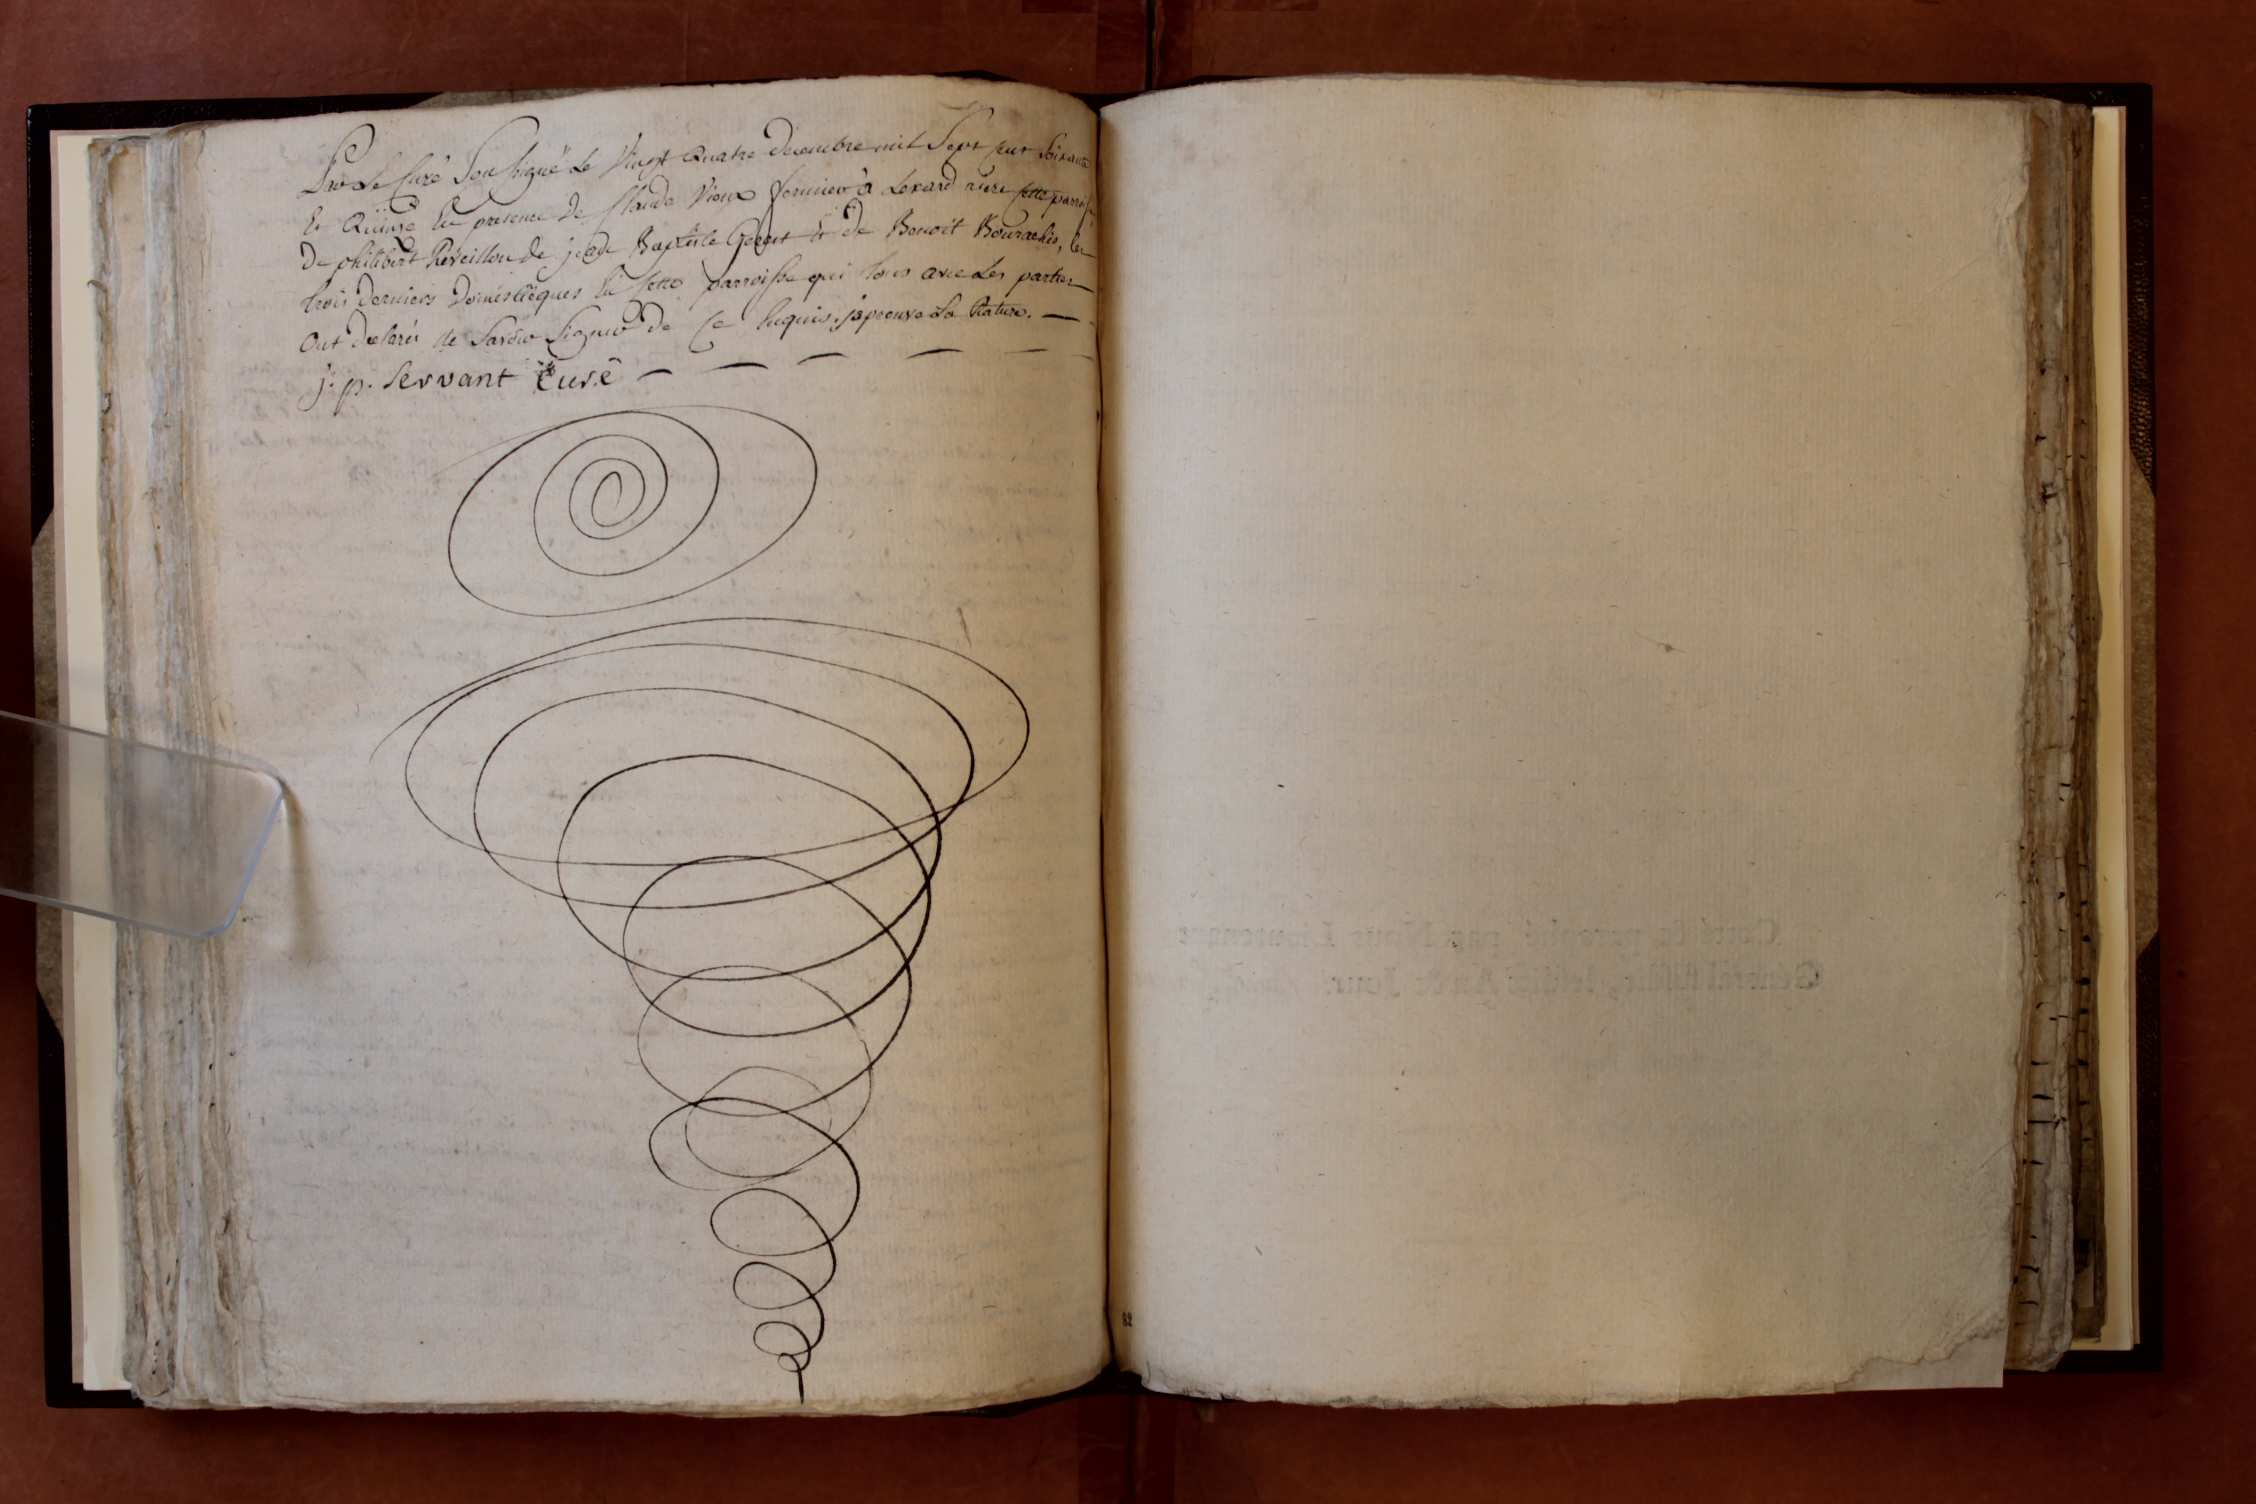 Pro Le Curé Sousigné Le Vingt Quatre decembre mil Sept cent Soixante
Et Quinse En presence De Claude Vieux fermier à Lexard riere cette parroisse
De philibert Reveillon de jean Baptiste Et de Benoit les
trois derniers Domestiques En cette parroisse qui tous avec Les parties
Ont declarés ne Savoir Signer de Ce Enquis. j'aprouve La Rature.
j. p. Servant Curé
Cotté & paraphé par Nous Lieutenant
Général susdit, lesdits An & Jour.
82